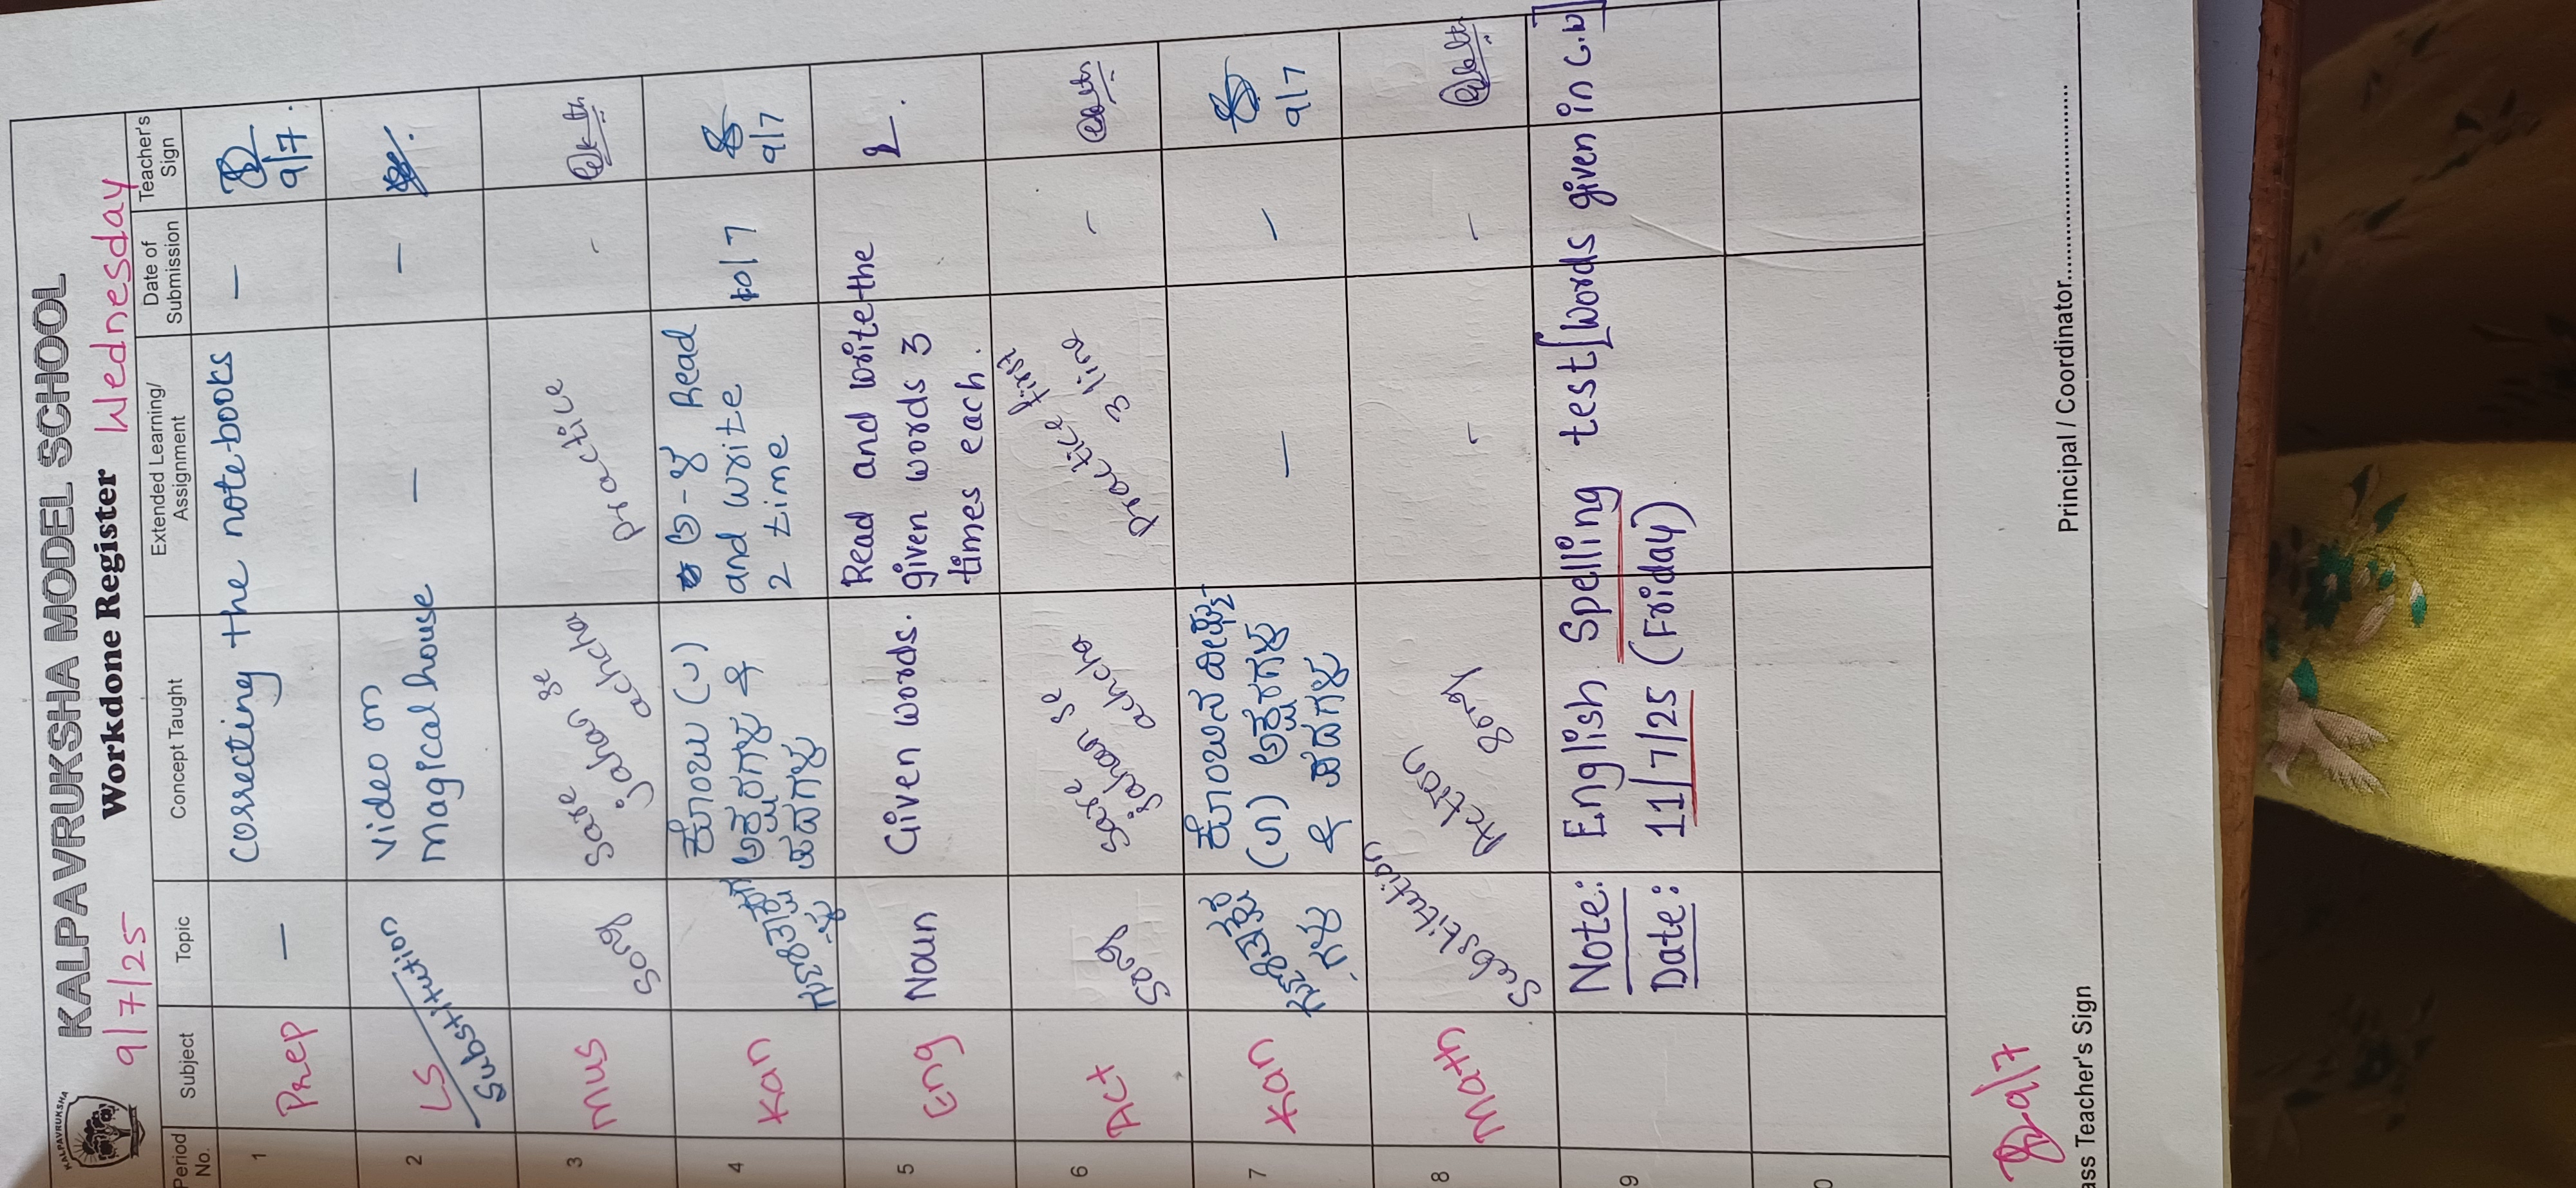 KALPAVRUKSHA
KALPAVRUKSHA MODEL SCHOOL
9/7/25 Workdone Register Wednesday
Period No. Subject Topic Concept Taught Extended Learning/ Assignment Date of Submission Teacher's Sign
1 Prep — correcting the notebooks — 9/7.
2 LS Substitution Video on
magical house — —
3 Mus Song Sare
jahan se
achcha practice -
4 Kan ಕೊಂಬು (ು)
ಅಕ್ಷರಗಳು &
ಪದಗಳು
Read
and write
2 time 10/7 9/7
5 Eng Noun Given words. Read and write the
given words 3
times each.
6 Act Song Sare
jahan se
achcha practice first
3 line -
7 Kan ಕೊಂಬಿನ ದೀರ್ಘ
(ೂ) ಅಕ್ಷರಗಳು
& ಪದಗಳು — — 9/7
8 Math Substitution Action Song - -
9 Note: English Spelling test [words given in C.W]
Date: 11/7/25 (Friday)
9/7
ass Teacher's Sign Principal / Coordinator